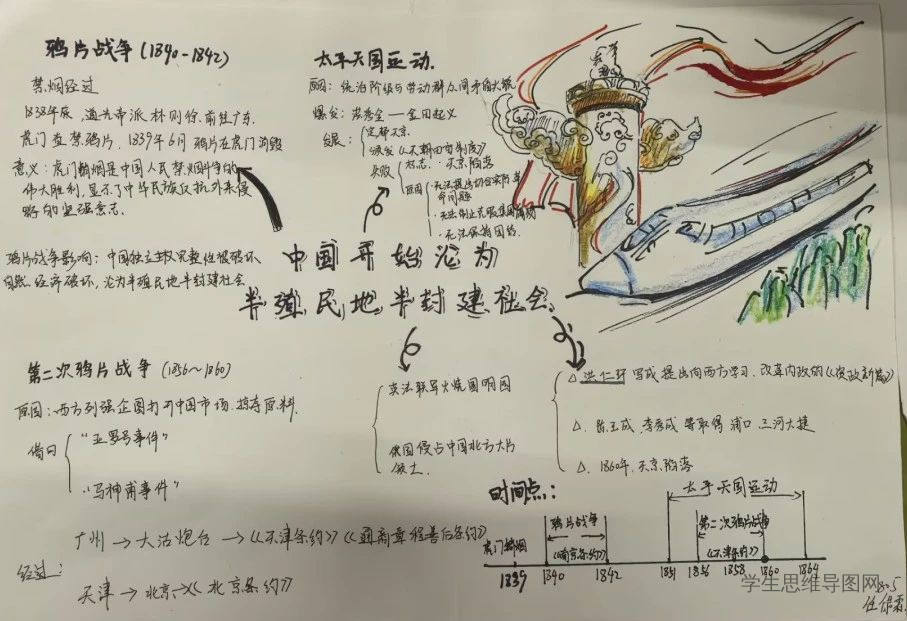 鸦片战争(1840-1842)
禁烟经过
1838年底,道光帝派林则徐前往广东
虎门查禁鸦片.1839年6月 鸦片在虎门消毁
意义:虎门销烟是中国人民禁烟斗争的
伟大胜利,显示了中华民族反抗外来侵
略的坚强意志。
鸦片战争影响:中国独立主权完整性被破坏、
自然经济破坏,沦为半殖民地半封建社会
太平天国运动.
原因:统治阶级与劳动群众间矛盾的大
爆发:洪秀全—金田起义
发展:
定都天京
颁发《天朝田亩制度》
失败
标志:天京陷落
原因
·无法提出切合实际革
命问题
·无法制止
·无法保持团结.
中国开始沦为
半殖民地半封建社会.
第二次鸦片战争(1856~1860)
原因:西方列强企图打开中国市场.掠夺原料.
借口
"亚罗号事件"
"马神甫事件"
广州→大沽炮台→《天津条约》《通商章程善后条约》
经过:
天津→北京→《北京条约》
英法联军火烧圆明园
俄国侵占中国北方大片
领土.
△洪仁玕 写成提出向西方学习、改革内政的《资政新篇》
△.陈玉成,李秀成等取得 浦口、三河大捷
△.1860年,天京陷落
时间点:
太平天国运动
鸦片战争
第二次鸦片战争
虎门销烟
《南京条约》
《天津条约》
1839 1840 1842 1851 1856 1858 1860 1864
学生思维导图网
1805